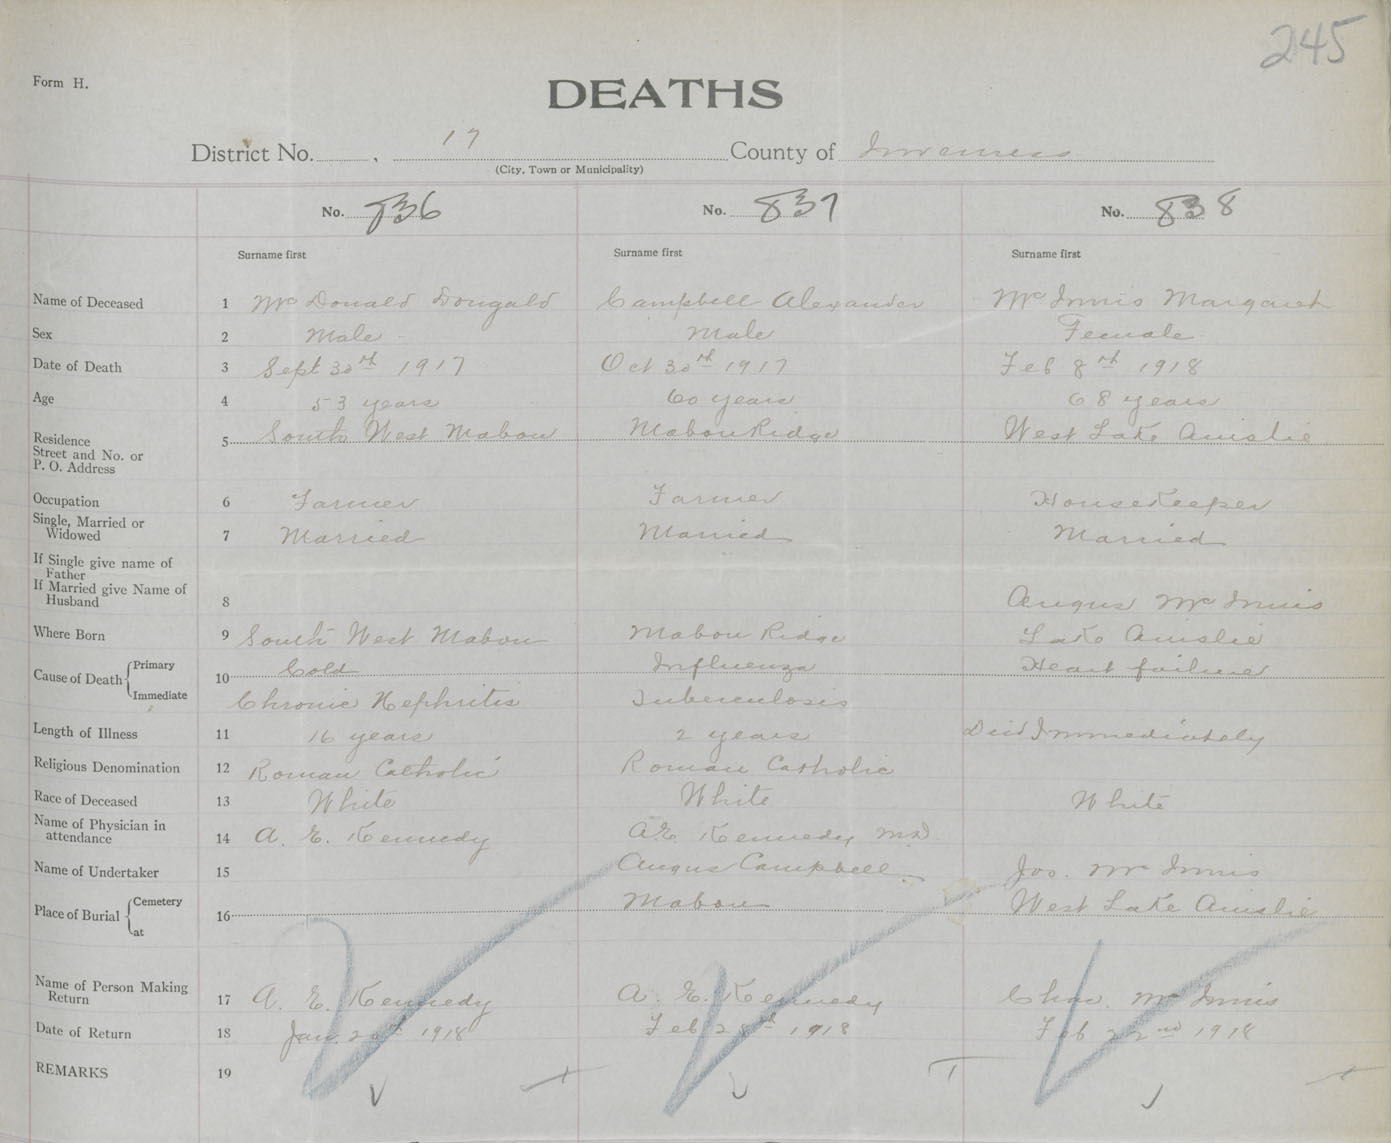 245
Form H.
DEATHS
District No. , 17 County of Inverness
(City, Town or Municipality)
No. 836 No. 837 No. 838
Surname first Surname first Surname first
Name of Deceased 1 Mc Donald Dougald Campbell Alexander Mc Innis Margaret
Sex 2 Male Male Female
Date of Death 3 Sept 30th 1917 Oct 30th 1917 Feb 8th 1918
Age 4 53 years 60 years 68 years
Residence
Street and No. or
P. O. Address
5 South West Mabou Mabou Ridge West Lake Ainslie
Occupation 6 Farmer Farmer HouseKeeper
Single, Married or
Widowed 7 Married Married Married
If Single give name of
Father
If Married give Name of
Husband 8 Angus Mc Innis
Where Born 9 South West Mabou Mabou Ridge Lake Ainslie
Cause of Death 10
Primary Cold Influenza Heart failure
Immediate Chronic Nephritis Tuberculosis
Length of Illness 11 16 years 2 years Died Immediately
Religious Denomination 12 Roman Catholic Roman Catholic
Race of Deceased 13 White White White
Name of Physician in
attendance 14 A. E. Kennedy A.E. Kennedy M.D.
Name of Undertaker 15 Angus Campbell Jos. Mc Innis
Place of Burial 16
Cemetery Mabou West Lake Ainslie
at
Name of Person Making
Return 17 A. E. Kennedy A. E. Kennedy Chas. Mc Innis
Date of Return 18 Jan. 1918 Feb 28th 1918 Feb 22nd 1918
REMARKS 19